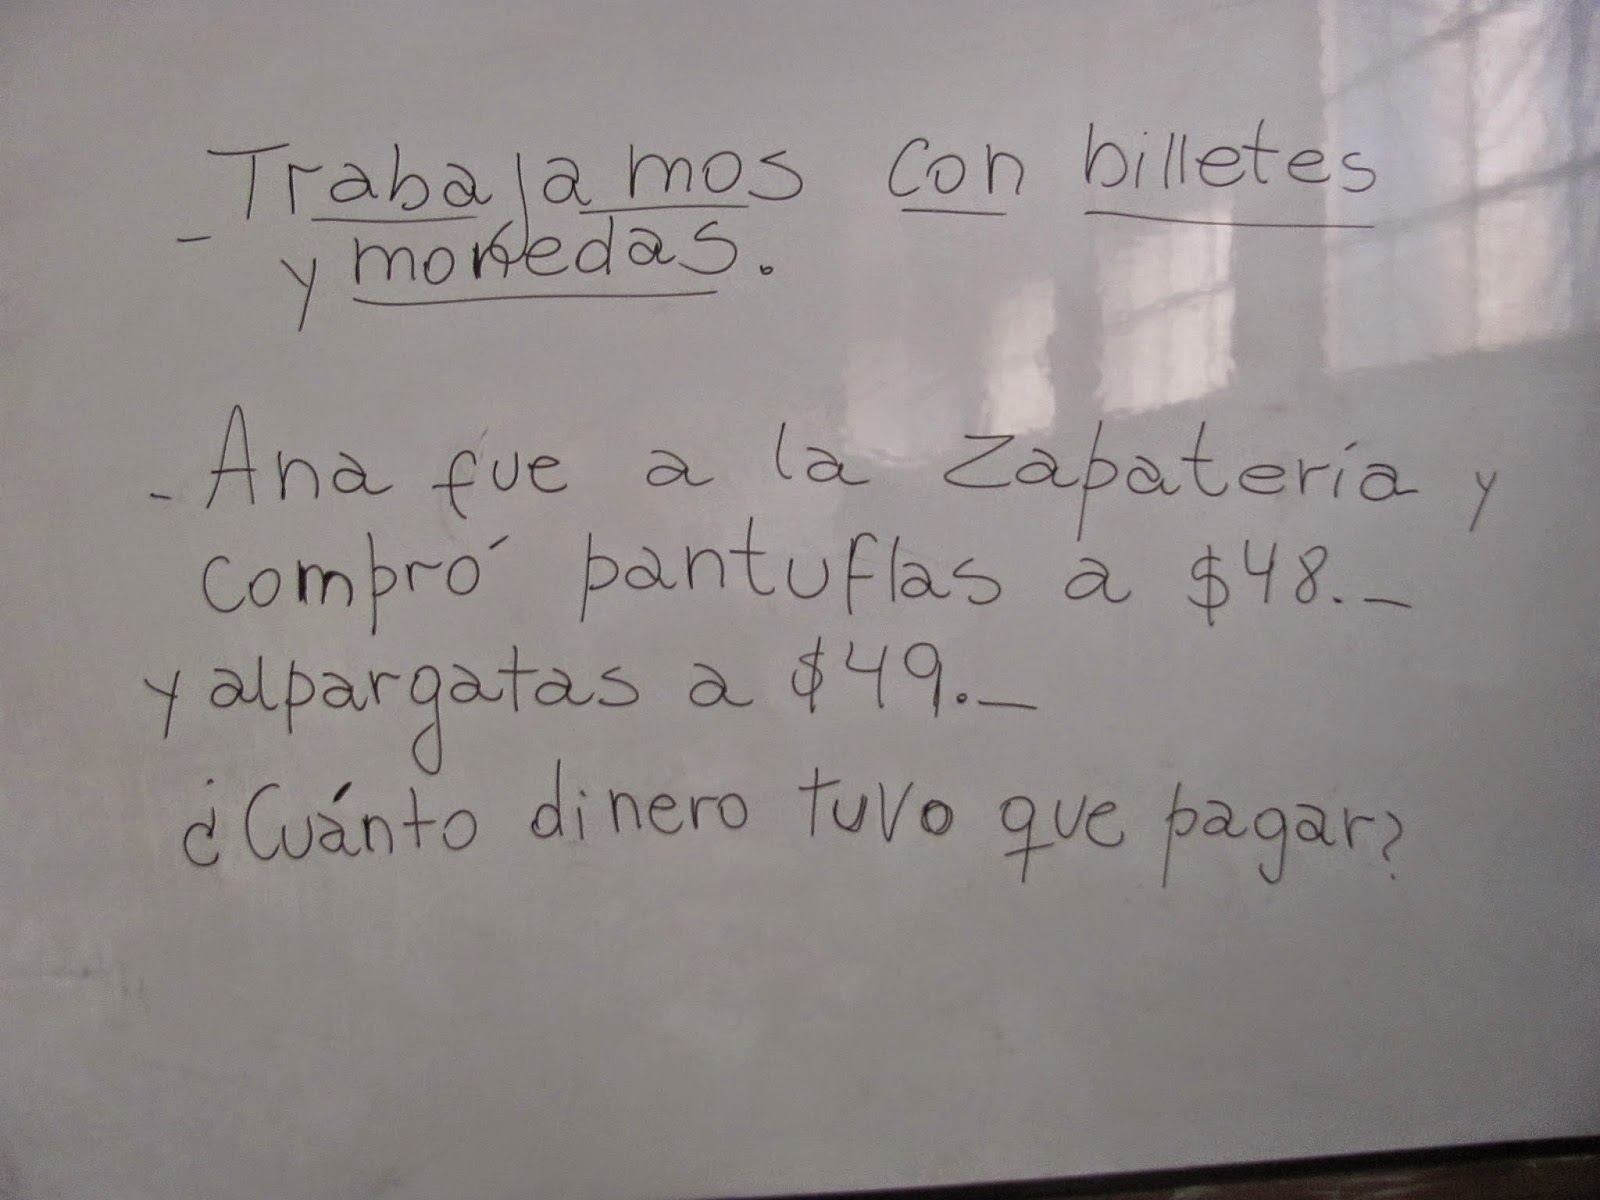 - Trabajamos con billetes
y monedas.
- Ana fue a la zapatería y
compró pantuflas a $48.-
y alpargatas a $49.-
¿Cuánto dinero tuvo que pagar?